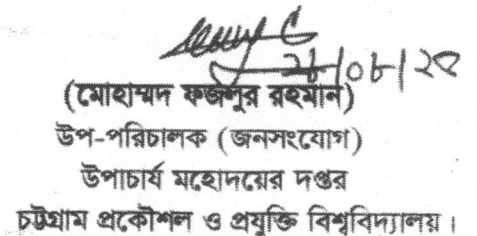 (মোহাম্মদ ফজলুর রহমান)
উপ-পরিচালক (জনসংযোগ)
উপাচার্য মহোদয়ের দপ্তর
চট্টগ্রাম প্রকৌশল ও প্রযুক্তি বিশ্ববিদ্যালয়।